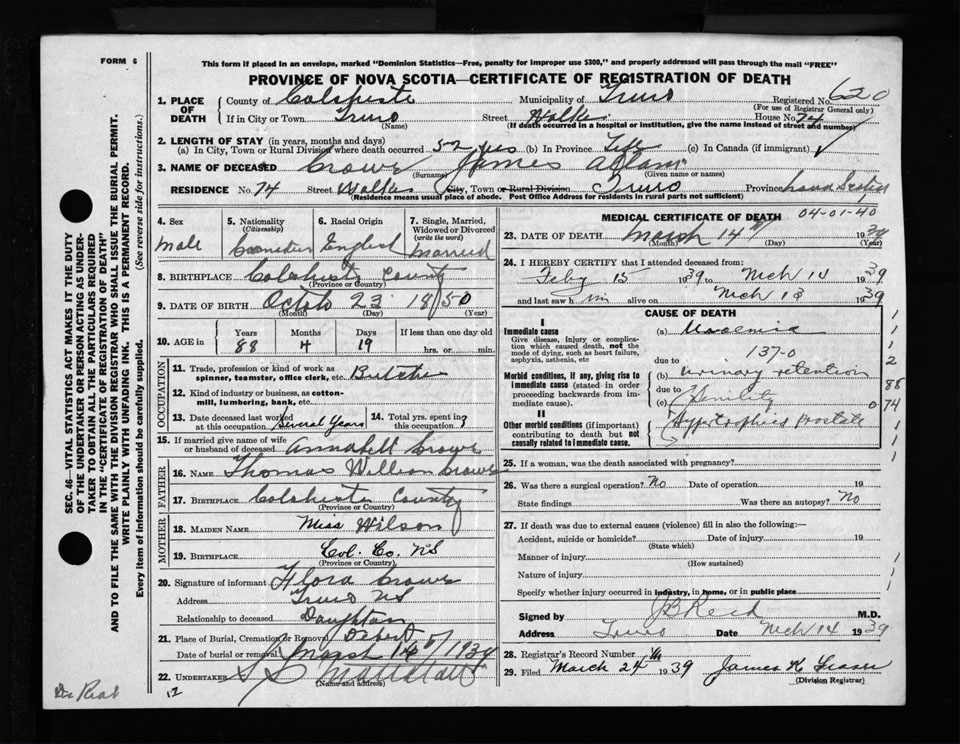 FORM 6
This form if placed in an envelope, marked "Dominion Statistics—Free, penalty for improper use $300," and properly addressed will pass through the mail "FREE"
PROVINCE OF NOVA SCOTIA—CERTIFICATE OF REGISTRATION OF DEATH
1. PLACE OF DEATH
County of Colchester Municipality of Truro Registered No. 620
(For use of Registrar General only)
If in City or Town Truro Street Walker House No. 74
(Name) (If death occurred in a hospital or institution, give the name instead of street and number)
2. LENGTH OF STAY (in years, months and days)
(a) In City, Town or Rural Division where death occurred 52 yrs (b) In Province Life (c) In Canada (if immigrant)
3. NAME OF DECEASED Crowe James Adam
(Surname) (Given name or names)
RESIDENCE No. 74 Street Walker City, Town or Rural Division Truro Province Nova Scotia
(Residence means usual place of abode. Post Office Address for residents in rural parts not sufficient)
4. Sex 5. Nationality 6. Racial Origin 7. Single, Married,
(Citizenship) Widowed or Divorced
(write the word)
Male English Married
8. BIRTHPLACE Colchester County
(Province or Country)
9. DATE OF BIRTH 23 1850
(Month) (Day) (Year)
10. AGE in Years Months Days If less than one day old
88 4 19 hrs. or min.
OCCUPATION
11. Trade, profession or kind of work as
spinner, teamster, office clerk, etc. Butcher
12. Kind of industry or business, as cotton-
mill, lumbering, bank, etc.
13. Date deceased last worked
at this occupation Several Years
14. Total yrs. spent in
this occupation ?
15. If married give name of wife
or husband of deceased Annabell Crowe
FATHER
16. NAME Thomas William Crowe
17. BIRTHPLACE Colchester County
(Province or Country)
MOTHER
18. MAIDEN NAME Miss Wilson
19. BIRTHPLACE Col. Co. NS
(Province or Country)
20. Signature of informant Flora Crowe
Address Truro NS
Relationship to deceased Daughter
21. Place of Burial, Cremation or Removal Debert
Date of burial or removal March
22. UNDERTAKER
(Name and address)
12
MEDICAL CERTIFICATE OF DEATH
04-01-40
23. DATE OF DEATH March 14 1939
(Month) (Day) (Year)
24. I HEREBY CERTIFY that I attended deceased from:
Feby 15 1939 to Mch 14 1939
and last saw him alive on Mch 13 1939
CAUSE OF DEATH
I
Immediate cause (a) Uraemia
Give disease, injury or complica-
tion which caused death, not the
mode of dying, such as heart failure,
asphyxia, asthenia, etc
137-0
due to
Morbid conditions, if any, giving rise to
immediate cause (stated in order
proceeding backwards from im-
mediate cause).
(b) Urinary retention
due to
(c) Senility
II
Other morbid conditions (if important)
contributing to death but not
causally related to immediate cause.
Hypertrophied Prostate
1
1
1
2
88
0 74
1
1
1
25. If a woman, was the death associated with pregnancy?
26. Was there a surgical operation? No Date of operation 19
State findings Was there an autopsy? No
27. If death was due to external causes (violence) fill in also the following:—
Accident, suicide or homicide? Date of injury 19
(State which)
Manner of injury
(How sustained)
Nature of injury
Specify whether injury occurred in industry, in home, or in public place
Signed by J B Reid M.D.
Address Truro Date Mch 14 1939
28. Registrar's Record Number
29. Filed March 24 1939 James H Fraser
(Division Registrar)
SEC. 46—VITAL STATISTICS ACT MAKES IT THE DUTY
OF THE UNDERTAKER OR PERSON ACTING AS UNDER-
TAKER TO OBTAIN ALL THE PARTICULARS REQUIRED
IN THE "CERTIFICATE OF REGISTRATION OF DEATH"
AND TO FILE THE SAME WITH THE DIVISION REGISTRAR WHO SHALL ISSUE THE BURIAL PERMIT.
WRITE PLAINLY WITH UNFADING INK. THIS IS A PERMANENT RECORD.
Every item of information should be carefully supplied. (See reverse side for instructions.)